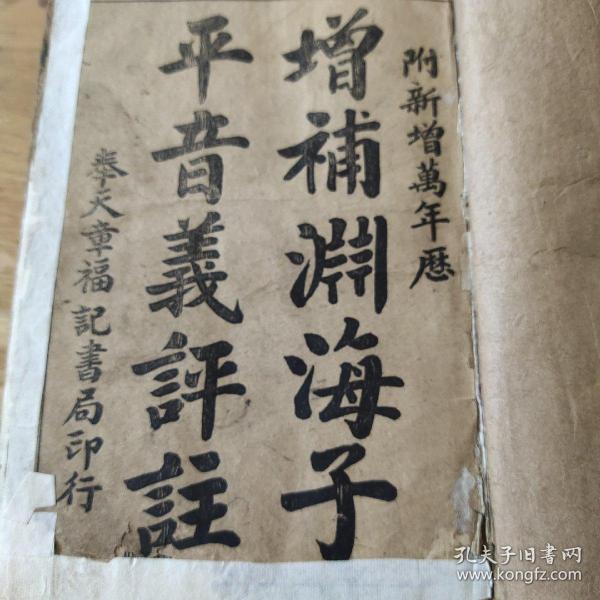 附新增萬年歷
增補淵海子
平音義評註
奉天章福記書局印行
孔夫子旧书网
www.kongfz.com